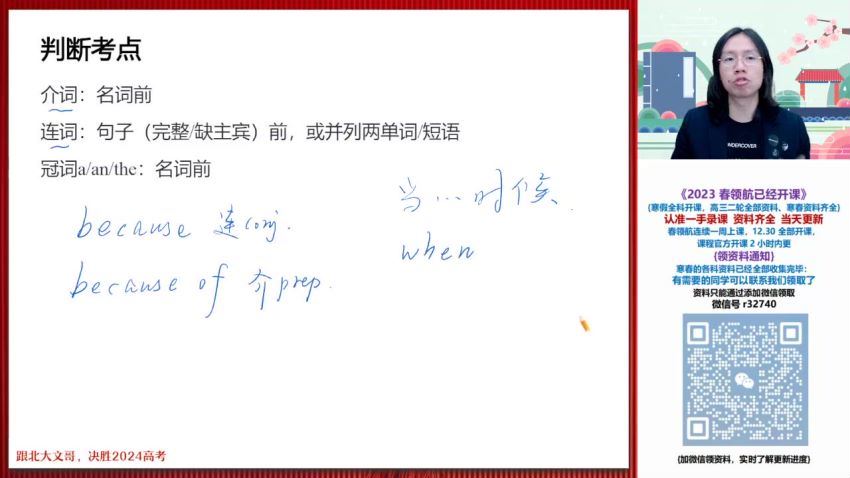 判断考点
介词：名词前
连词：句子（完整/缺主宾）前，或并列两单词/短语
冠词a/an/the：名词前
because 连conj.
because of 介prep.
当…时候
when
跟北大文哥，决胜2024高考
UNDERCOVER
《2023 春领航已经开课》
(寒假全科开课，高三二轮全部资料、寒春资料齐全)
认准一手录课 资料齐全 当天更新
春领航连续一周上课，12.30 全部开课，
课程官方开课 2 小时内更
(领资料通知)
寒春的各科资料已经全部收集完毕：
有需要的同学可以联系我们领取了
资料只能通过添加微信领取
微信号 r32740
(加微信领资料，实时了解更新进度)